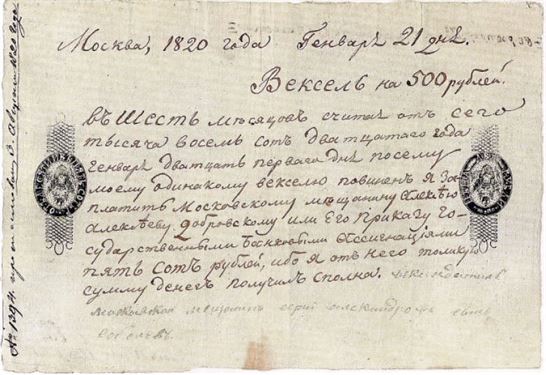 Москва, 1820 года Генварѣ 21 дня.
Вексель на 500 рублей.
въ шесть мѣсяцовъ считая отъ сего
тысяча восемь сотъ дватцатаго года
генваря дватцать перваго дня посему
моему одинакому векселю повиненъ я за-
платить Московскому мѣщанину Алексѣю
Алексѣеву Добровскому или Его Приказу го-
сударственными банковыми Ассигнациями
пять сотъ рублей, ибо я отъ него толикую
сумму денегъ получилъ сполна.
московской мещанинъ